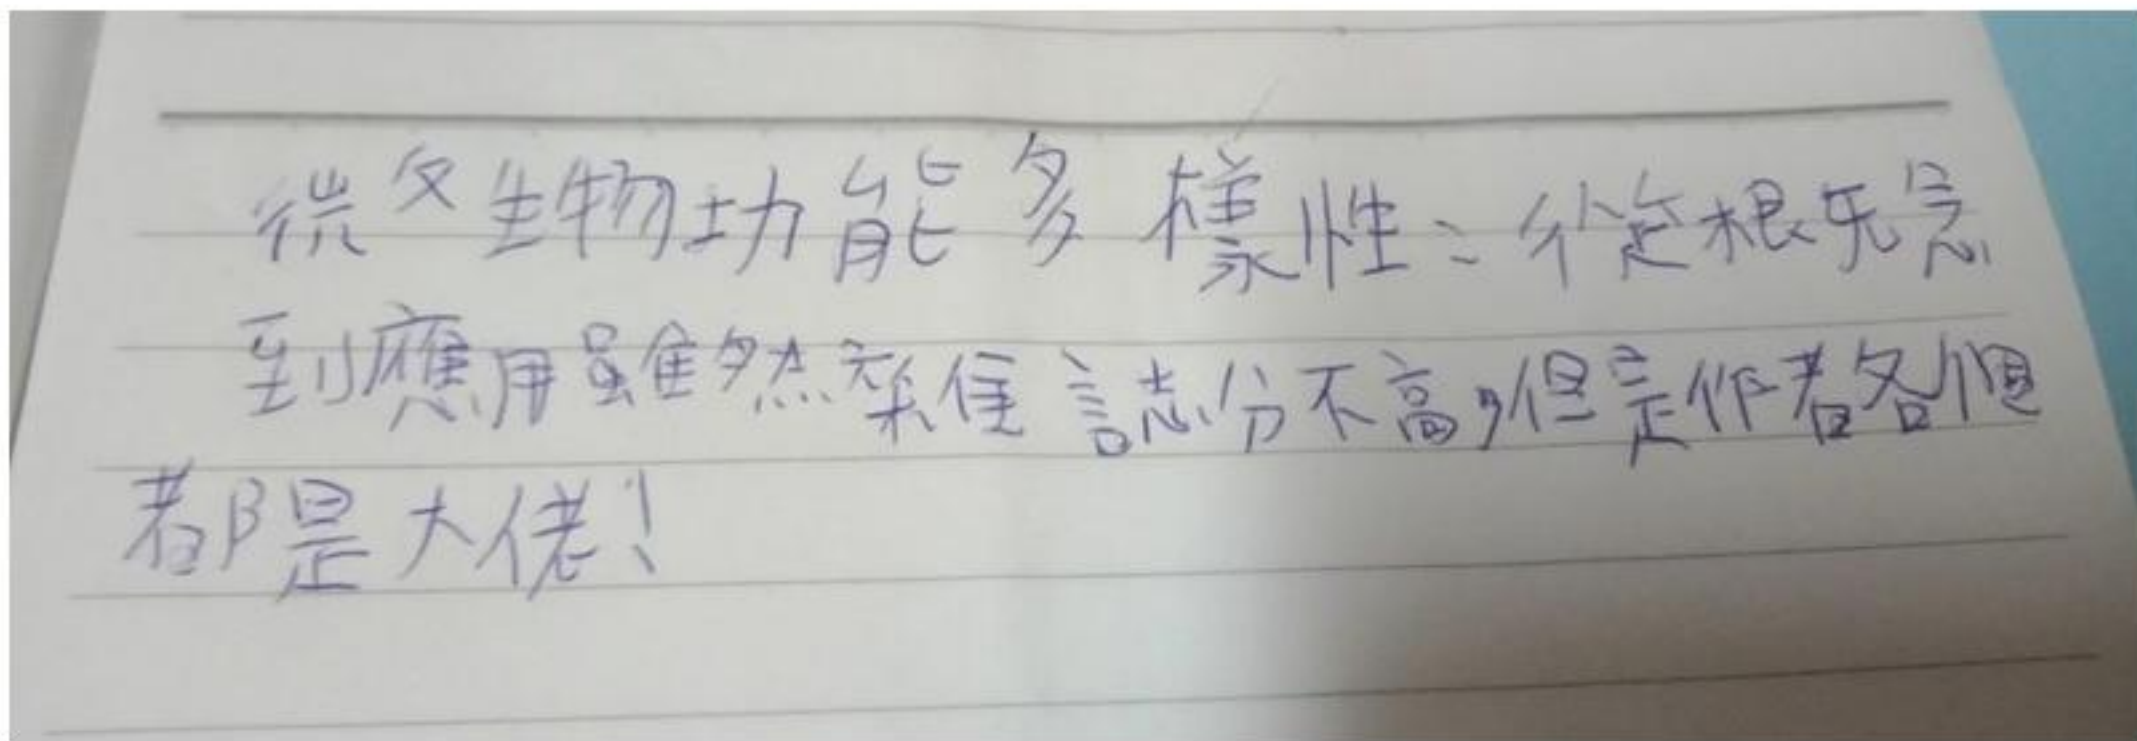 微生物功能多樣性：從根冗忩
到應用雖然雜誌分不高，但是作者各個
都是大佬！